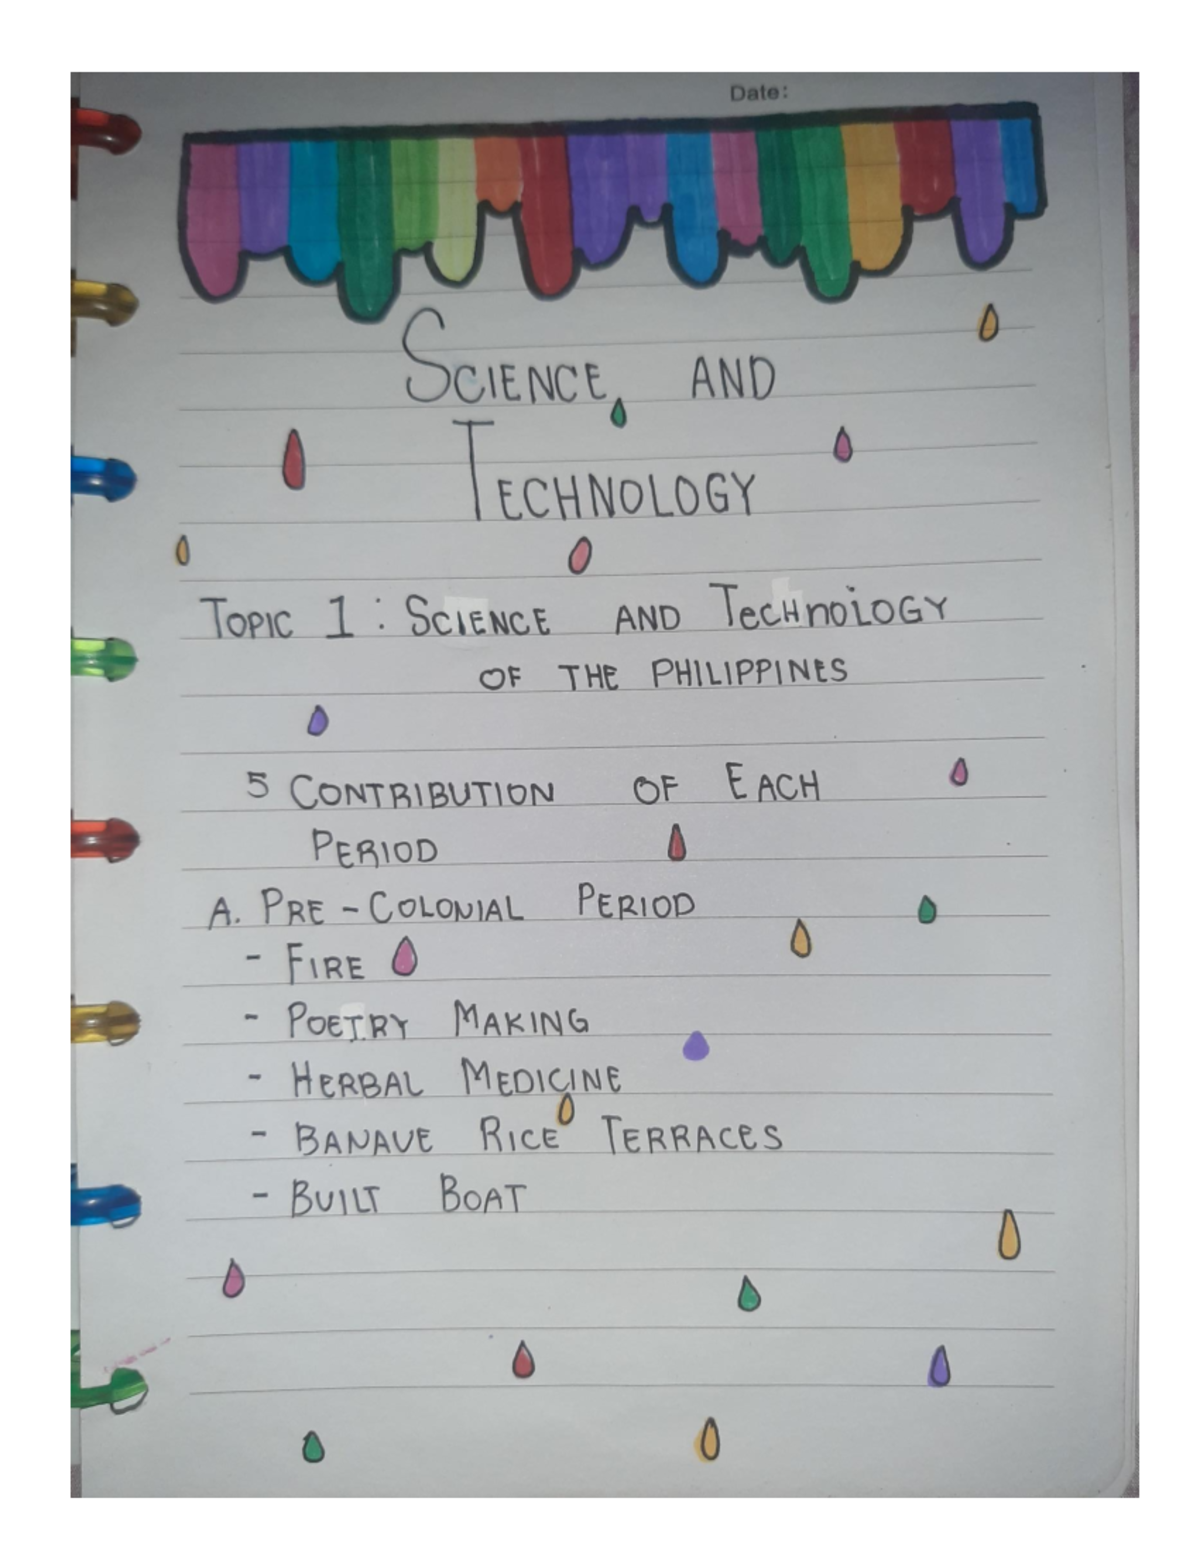 Date:
SCIENCE AND
TECHNOLOGY
TOPIC 1 : SCIENCE AND TecHnoloGY
OF THE PHILIPPINES
5 CONTRIBUTION OF EACH
PERIOD
A. PRE - COLONIAL PERIOD
- FIRE
- POETRY MAKING
- HERBAL MEDICINE
- BANAUE RICE TERRACES
- BUILT BOAT